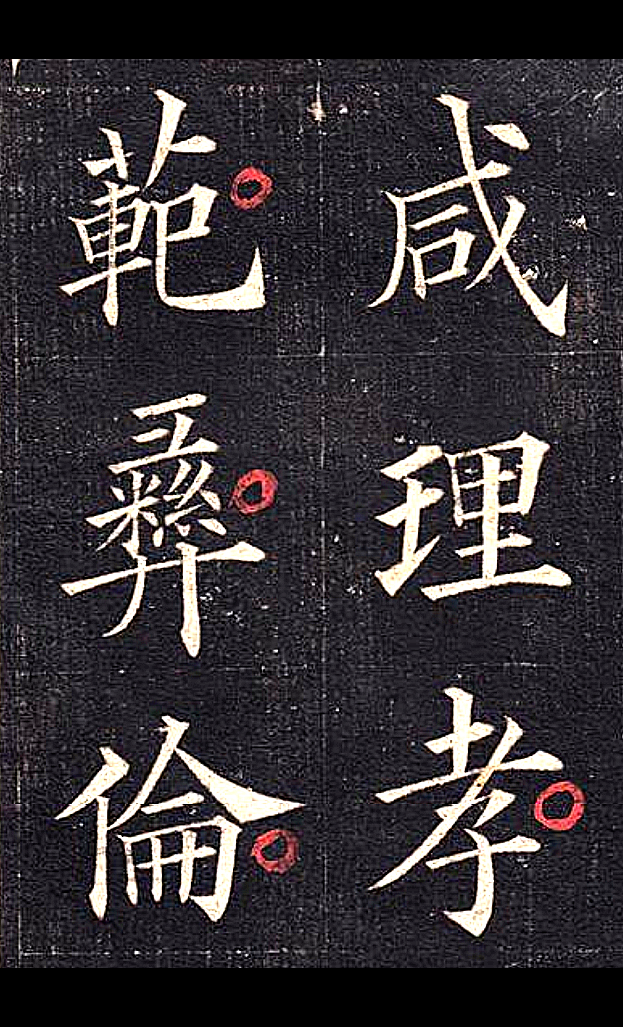 咸理孝
範彝倫